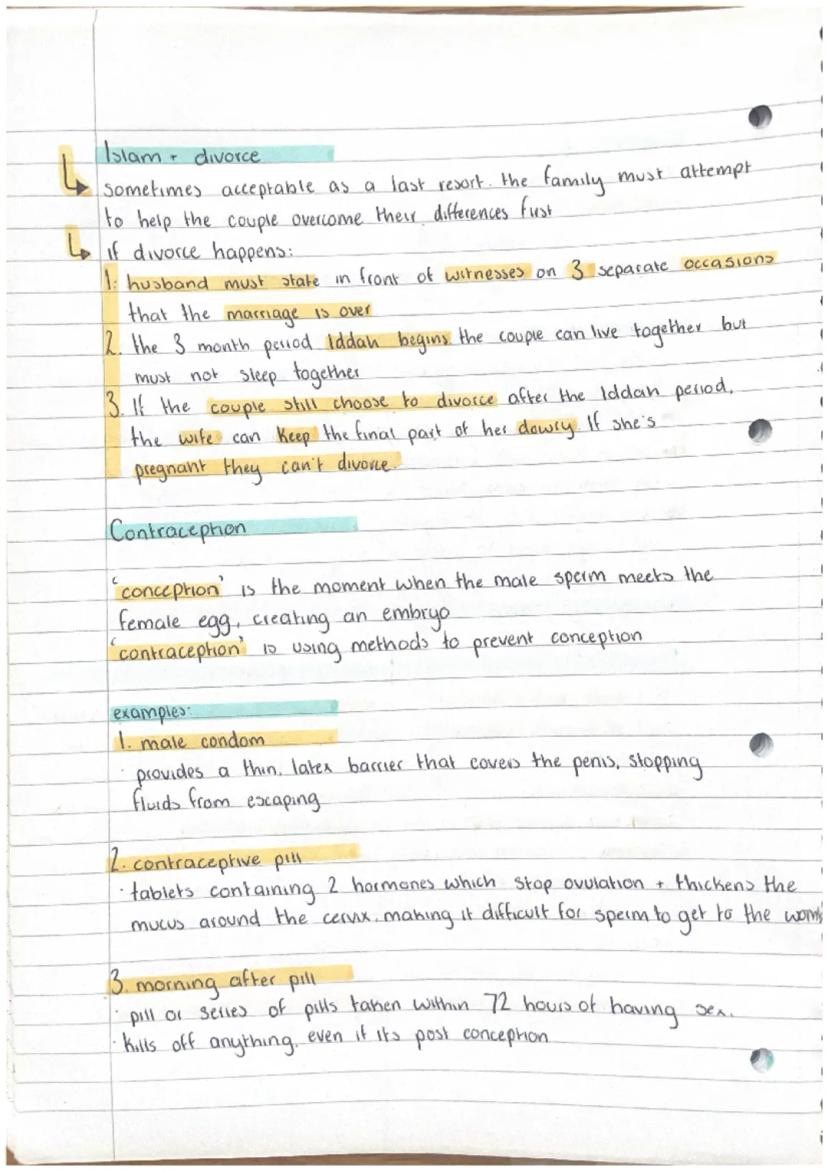 Islam + divorce
sometimes acceptable as a last resort. the family must attempt
to help the couple overcome their differences first
if divorce happens:
1. husband must state in front of witnesses on 3 separate occasions
that the marriage is over
2. the 3 month period Iddah begins. the couple can live together but
must not sleep together
3. If the couple still choose to divorce after the Iddah period,
the wife can keep the final part of her dowry. If she's
pregnant they can't divorce.
Contraception
'conception' is the moment when the male sperm meets the
female egg, creating an embryo
'contraception' is using methods to prevent conception
examples:
1. male condom
· provides a thin, latex barrier that covers the penis, stopping
fluids from escaping
2. contraceptive pill
· tablets containing 2 hormones which stop ovulation + thickens the
mucus around the cervix, making it difficult for sperm to get to the womb
3. morning after pill
· pill or series of pills taken within 72 hours of having sex.
· kills off anything, even if its post conception